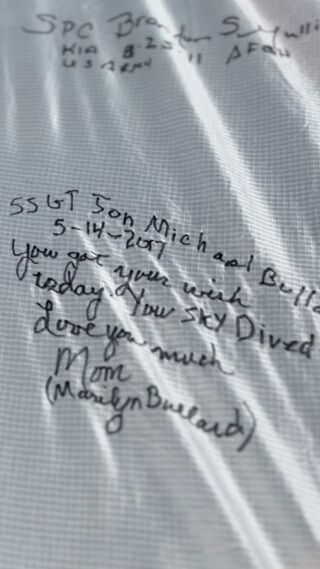 SPC
KIA 8-20-11
US ARMY
SSGT Jon Michael
5-14-2017
You got your wish
today. You SKY Dived
Love you much
Mom
(Marilyn Bullard)